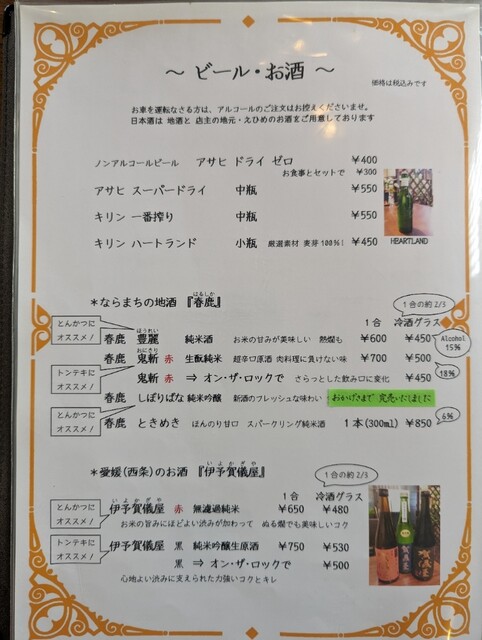 ～ ビール・お酒 ～
価格は税込みです
お車を運転なさる方は、アルコールのご注文はお控えくださいませ。
日本酒は 地酒と 店主の地元・えひめのお酒をご用意しております
ノンアルコールビール アサヒ ドライ ゼロ ¥400
お食事とセットで ¥300
アサヒ スーパードライ 中瓶 ¥550
キリン 一番搾り 中瓶 ¥550
キリン ハートランド 小瓶 厳選素材 麦芽100%！ ¥450
HEARTLAND
＊ならまちの地酒 『春鹿』
はるしか
1合の約2/3
1合 冷酒グラス
とんかつにオススメ！
春鹿 豊麗 純米酒 お米の甘みが美味しい 熱燗も ¥600 ¥450
ほうれい
Alcohol 15%
トンテキにオススメ！
春鹿 鬼斬 赤 生酛純米 超辛口原酒 肉料理に負けない味 ¥700 ¥500
おにきり
鬼斬 赤 ⇒ オン・ザ・ロックで さらっとした飲み口に変化 ¥450
18%
とんかつにオススメ！
春鹿 しぼりばな 純米吟醸 新酒のフレッシュな味わい おかげさまで 完売いたしました
春鹿 ときめき ほんのり甘口 スパークリング純米酒 1本(300ml) ¥850
6%
＊愛媛(西条)のお酒 『伊予賀儀屋』
いよかぎや
1合の約2/3
1合 冷酒グラス
とんかつにオススメ！
伊予賀儀屋 赤 無濾過純米 ¥650 ¥480
いよかぎや
お米の旨みにほどよい渋みが加わって ぬる燗でも美味しいコク
トンテキにオススメ！
伊予賀儀屋 黒 純米吟醸生原酒 ¥750 ¥530
黒 ⇒ オン・ザ・ロックで ¥500
心地よい渋みに変えられた力強いコクとキレ